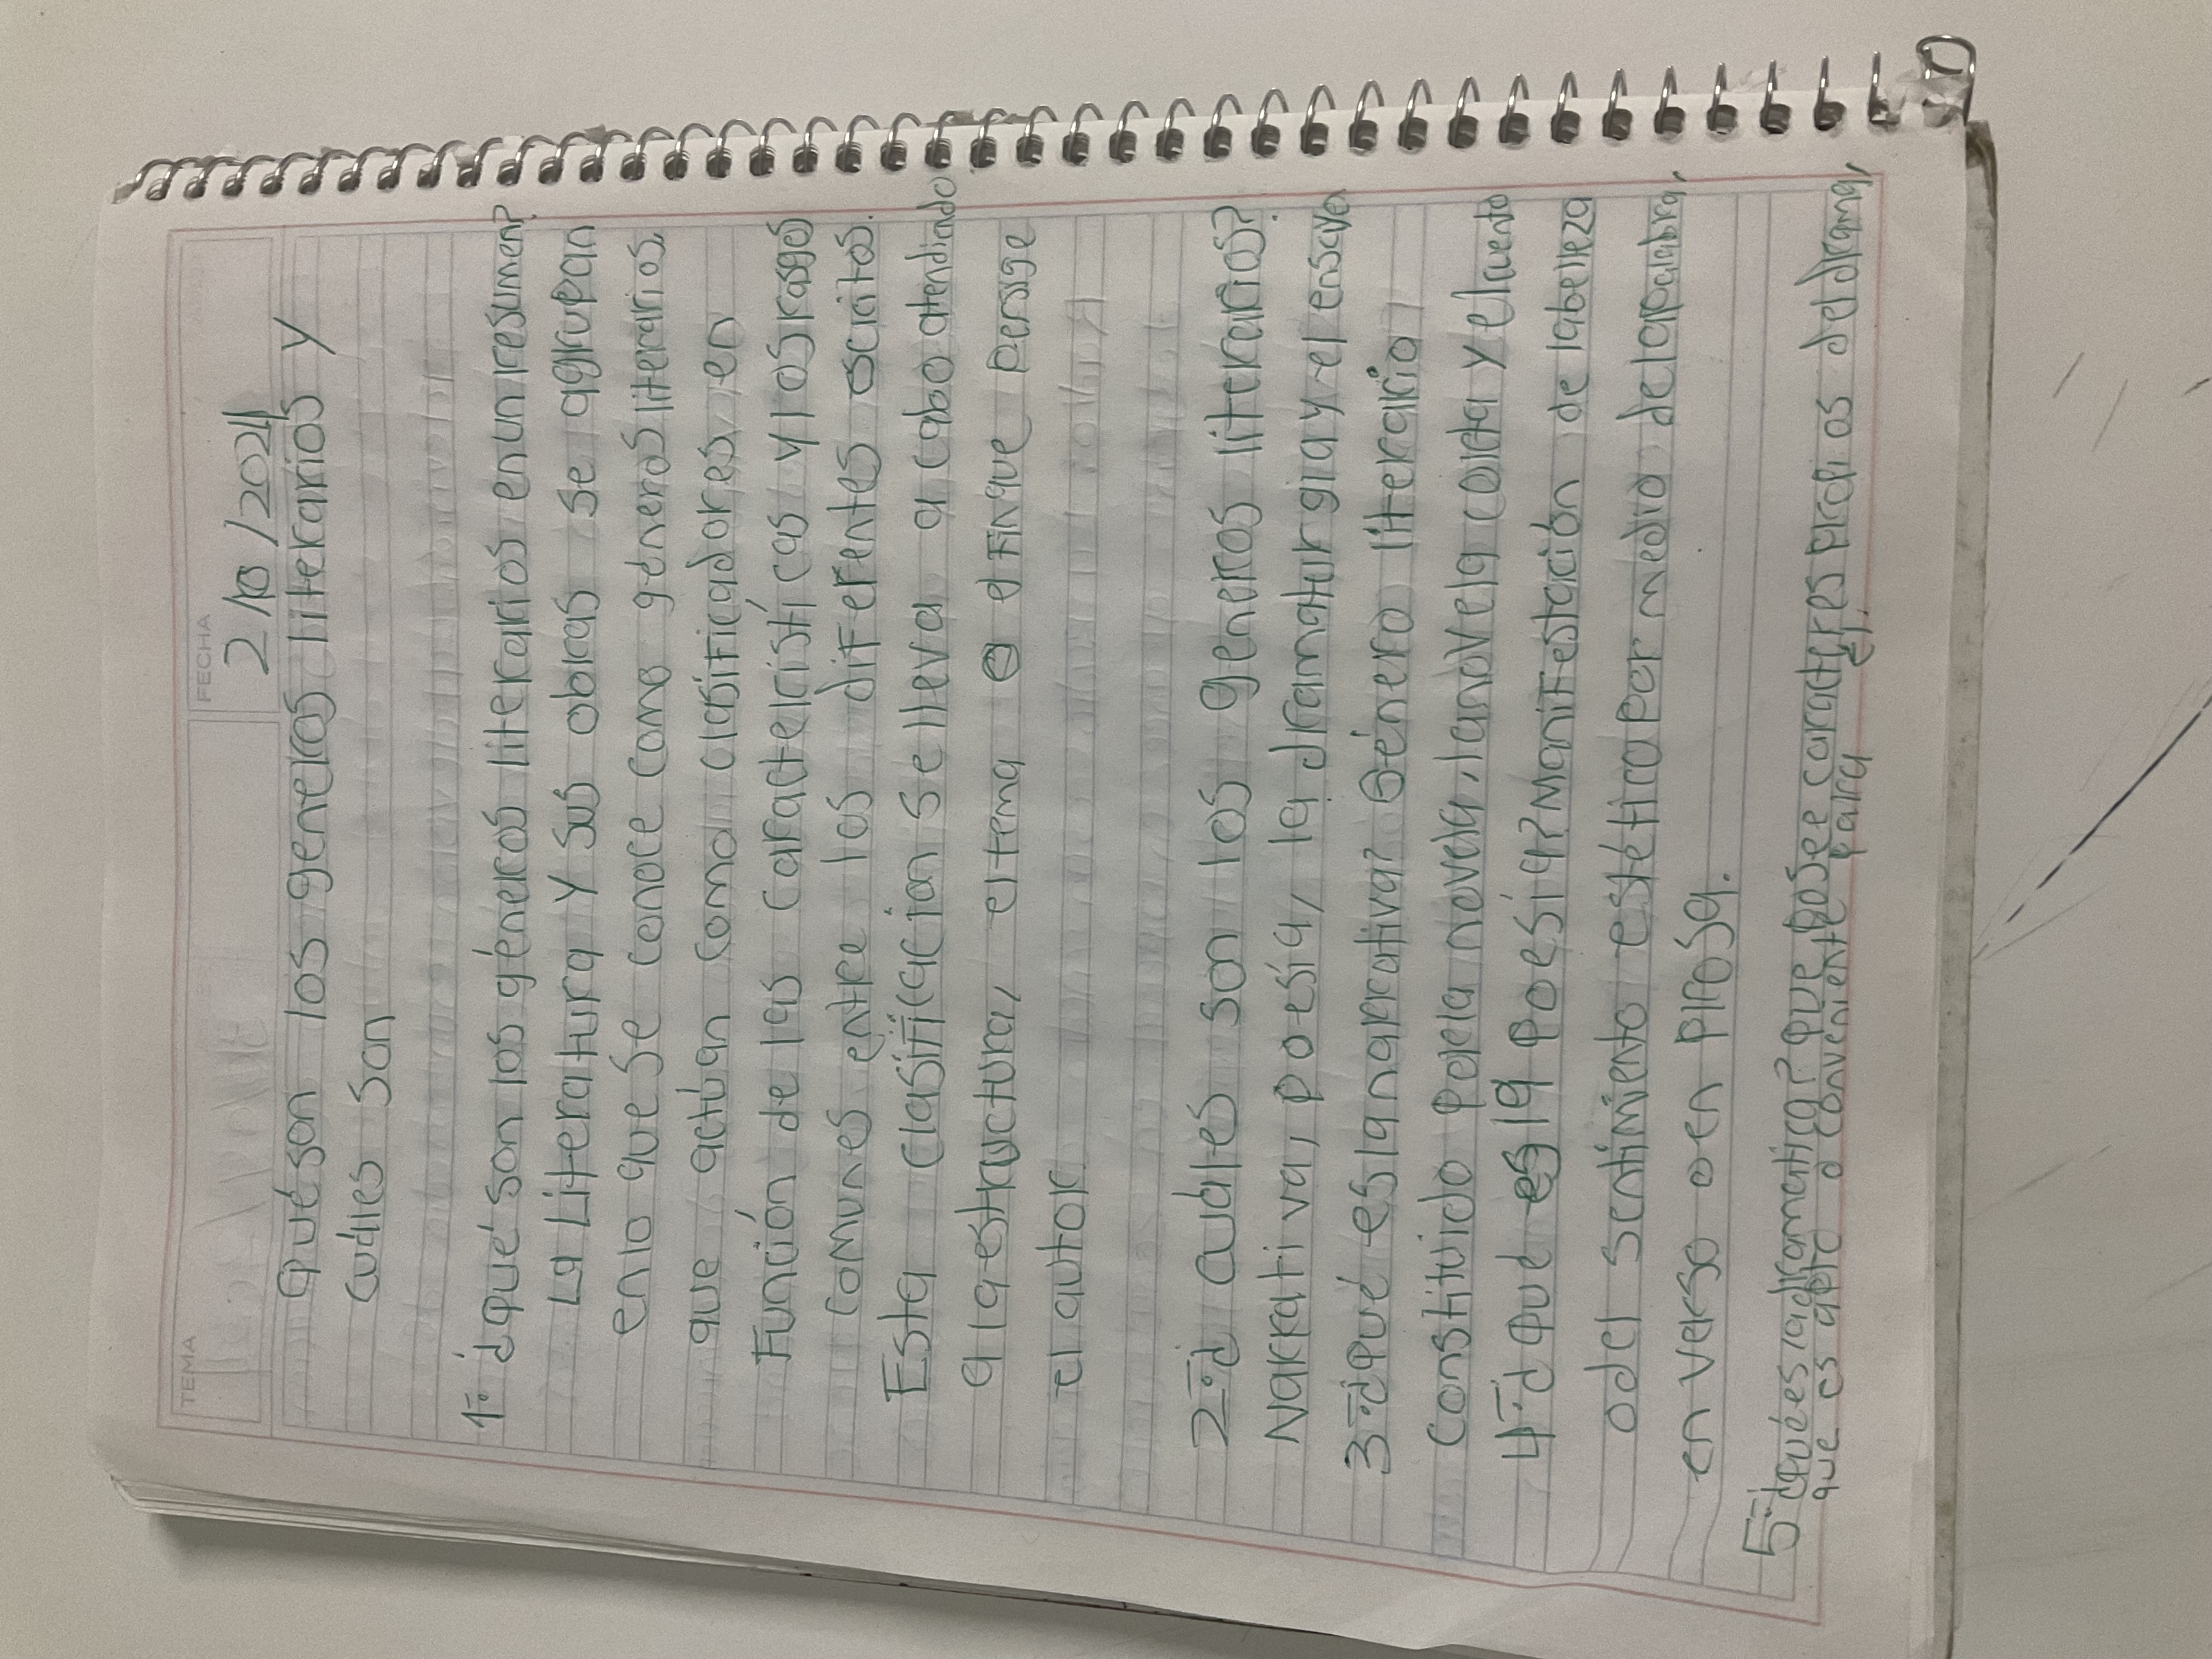 TEMA
FECHA
2/10/2021
Qué son los generos literarios y
cuáles son
1- ¿qué son los géneros literarios en un resumen?
La Literatura y sus obras se agrupan
en lo que se conoce como géneros literarios,
que actúan como clasificadores, en
Función de las características y los rasgos
comunes entre los diferentes escritos.
Esta clasificación se lleva a cabo atendiendo
a la estructura, el tema o el fin que persige
el autor
2-¿ cuáles son los generos literarios?
Narrativa, poesía, la dramaturgia y el ensayo
3-¿qué es la narrativa? Género literario
Constituido por la novela, la novela corta y el cuento
4-¿ qué es la poesía? Manifestación de la belleza
o del sentimiento estético por medio de la palabra,
en verso o en prosa.
5-¿qué es la dramatica? que posee caracteres propios del drama,
que es apto o conveniente para él.